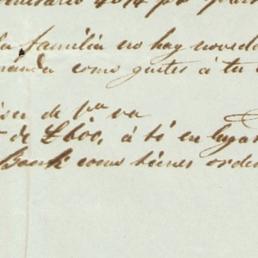 la familia no hay noveda
manda como gustes á tu
de pa. va
de £600, á ti en lugar
Bank como tienes orde